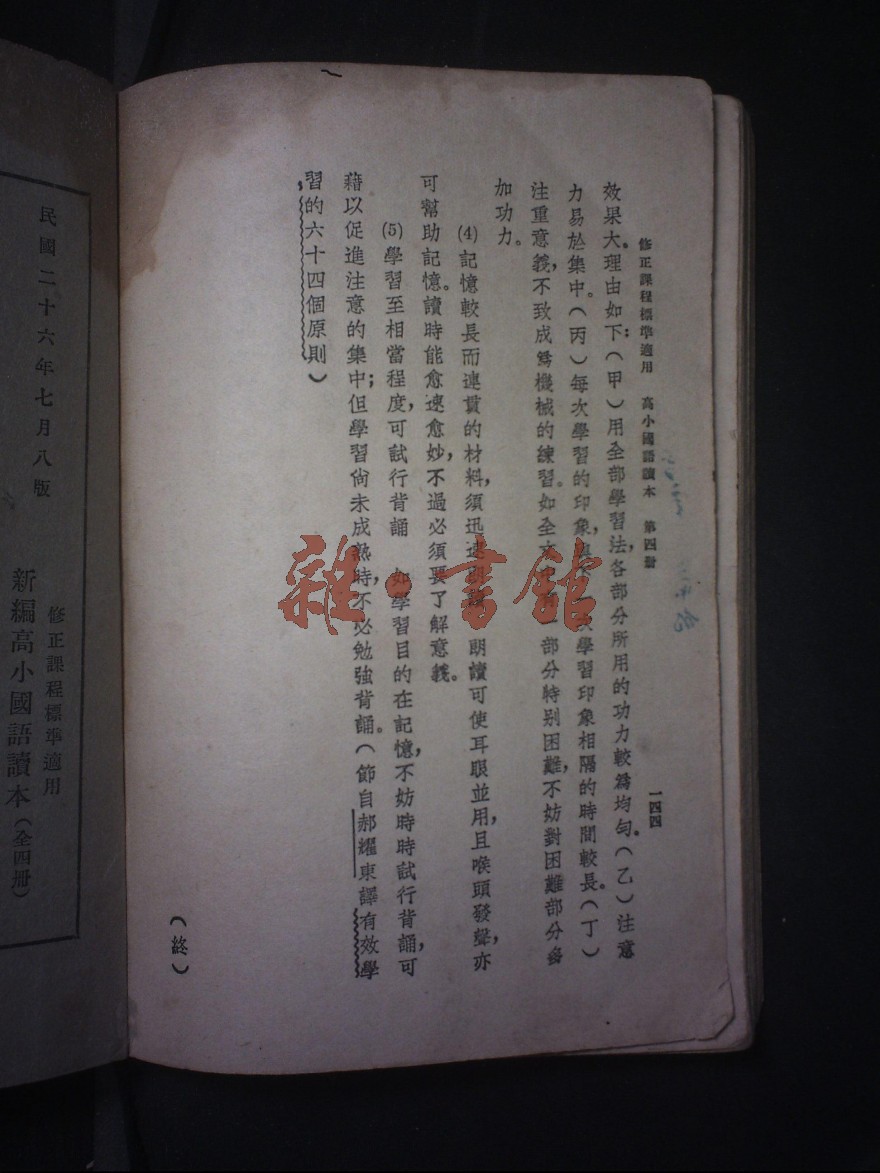 修正課程標準適用　高小國語讀本　第四册
一四四
效果大。理由如下：(甲)用全部學習法，各部分所用的功力較爲均勻。(乙)注意
力易於集中。(丙)每次學習的印象，與　次學習印象相隔的時間較長。(丁)
注重意義，不致成爲機械的練習。如全文　部分特別困難，不妨對困難部分多
加功力。
(4)記憶較長而連貫的材料，須迅速朗讀　朗讀可使耳眼並用，且喉頭發聲，亦
可幫助記憶。讀時能愈速愈妙，不過必須要了解意義。
(5)學習至相當程度，可試行背誦　如學習目的在記憶，不妨時時試行背誦，可
藉以促進注意的集中；但學習尙未成熟時，不必勉強背誦。(節自郝耀東譯有效學
習的六十四個原則)
(終)
修正課程標準適用
新編高小國語讀本(全四册)
民國二十六年七月八版
雜·書館